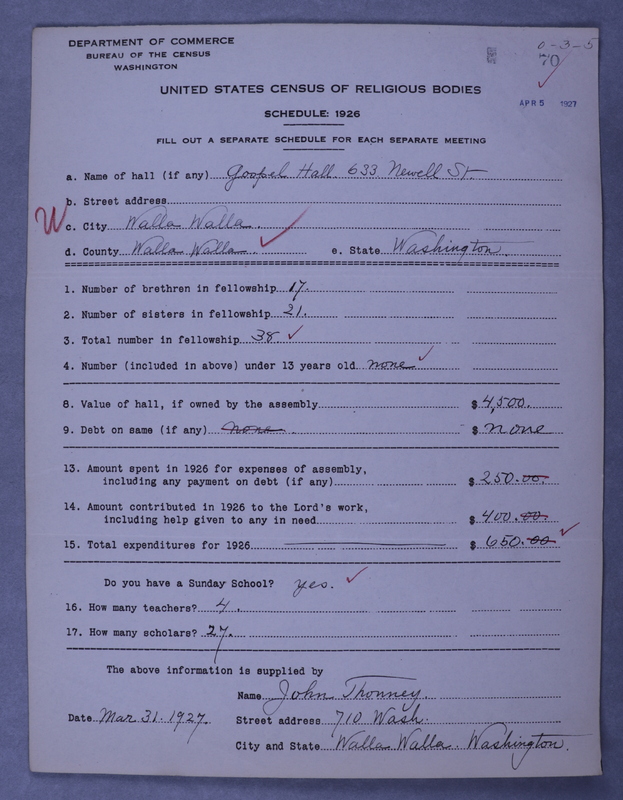 DEPARTMENT OF COMMERCE
BUREAU OF THE CENSUS
WASHINGTON
0-3-5
70
UNITED STATES CENSUS OF RELIGIOUS BODIES
APR 5 1927
SCHEDULE: 1926
FILL OUT A SEPARATE SCHEDULE FOR EACH SEPARATE MEETING
a. Name of hall (if any) Gospel Hall 633 Newell St
b. Street address
W c. City Walla Walla.
d. County Walla Walla e. State Washington.
1. Number of brethren in fellowship 17.
2. Number of sisters in fellowship 21.
3. Total number in fellowship 38
4. Number (included in above) under 13 years old none
8. Value of hall, if owned by the assembly $ 4,500.
9. Debt on same (if any) none. $ none
13. Amount spent in 1926 for expenses of assembly,
including any payment on debt (if any) $ 250.00.
14. Amount contributed in 1926 to the Lord's work,
including help given to any in need $ 400.00.
15. Total expenditures for 1926 $ 650.00
Do you have a Sunday School? yes.
16. How many teachers? 4.
17. How many scholars? 27.
The above information is supplied by
Name John Thonney
Date Mar 31. 1927. Street address 710 Wash.
City and State Walla Walla. Washington.